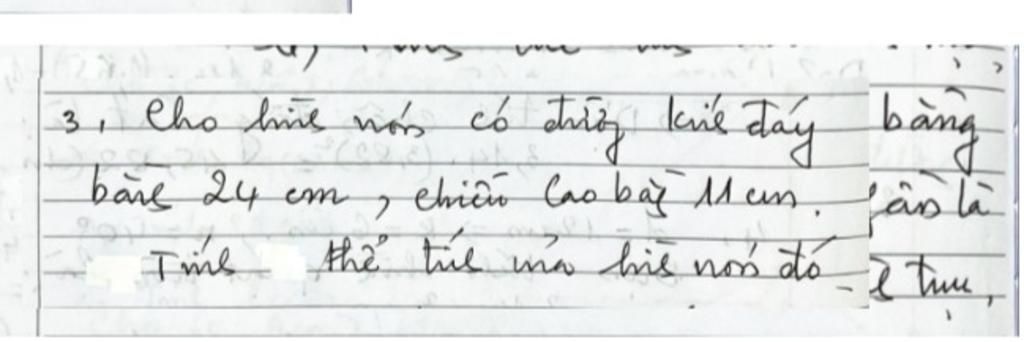 3, Cho hình nón có đường kính đáy bằng
bằng 24 cm, chiều cao bằng 11 cm. là
Tính thể tích của hình nón đó